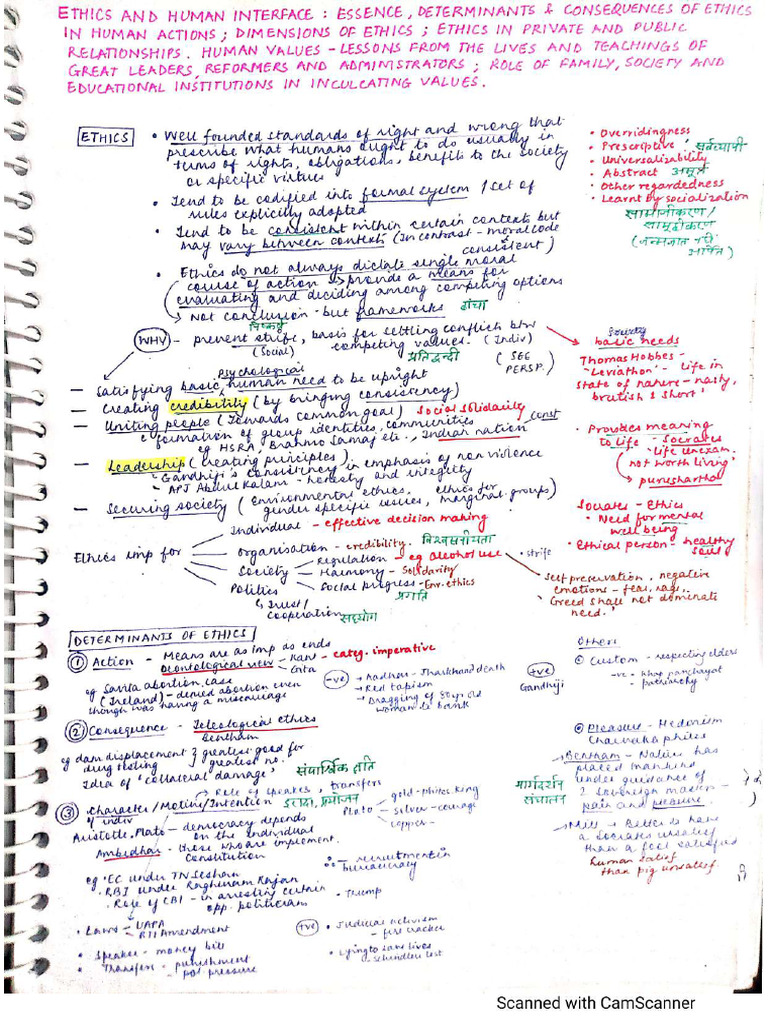 ETHICS AND HUMAN INTERFACE : ESSENCE, DETERMINANTS & CONSEQUENCES OF ETHICS
IN HUMAN ACTIONS ; DIMENSIONS OF ETHICS ; ETHICS IN PRIVATE AND PUBLIC
RELATIONSHIPS. HUMAN VALUES - LESSONS FROM THE LIVES AND TEACHINGS OF
GREAT LEADERS, REFORMERS AND ADMINISTRATORS ; ROLE OF FAMILY, SOCIETY AND
EDUCATIONAL INSTITUTIONS IN INCULCATING VALUES.
ETHICS
• Well founded standards of right and wrong that
prescribe what humans ought to do usually in
terms of rights, obligations, benefits to the society
or specific virtues
• Tend to be codified into formal system / set of
rules explicitly adopted
• Tend to be consistent within certain contexts but
may vary between contexts (In contrast - moral code
consistent)
• Ethics do not always dictate single moral
course of action → provide a means for
evaluating and deciding among competing options
↳ Not conclusion - but frameworks ढांचा
निष्कर्ष
• Overridingness
• Prescriptive सर्वव्यापी
• Universalizability
• Abstract अमूर्त
• Other regardedness
• Learnt by socialization
सामाजीकरण /
सामूहीकरण
(जन्मजात नहीं
अर्जित)
WHY
- prevent strife, basis for settling conflicts btw
(Social) competing values. (Indiv)
प्रतिद्वन्दी
(SEE
PERSP.)
psychological
- Satisfying basic human need to be upright
- Creating credibility (by bringing consistency)
- Uniting people (Towards common goal) Social Solidarity
↳ formation of group identities, communities
eg HSRA, Brahmo Samaj etc., Indian nation const
- Leadership (creating principles)
- Gandhiji's consistency in emphasis of non violence
- APJ Abdul Kalam - honesty and integrity
- Securing society (Environmental ethics, ethics for
gender specific issues, marginal groups)
Society
basic needs
Thomas Hobbes -
'Leviathon' - Life in
state of nature - nasty,
brutish & short'
• Provides meaning
to life - Socrates
'life unexam.
not worth living'
↳ purushartha
Socrates - Ethics
• Need for mental
well being
• Ethical person - healthy
soul
Ethics imp for
Individual - effective decision making
Organisation - credibility. विश्वसनीयता
Society
Regulation - eg alcohol use
Harmony - Solidarity
Social progress - Env. ethics
प्रगति
Politics
↳ Trust /
cooperation
सहयोग
• strife
Self preservation, negative
emotions - fear, rage,
'Greed shall not dominate
need.'
DETERMINANTS OF ETHICS
① Action - Means are as imp as ends
Deontological view
Kant - categ. imperative
Gita
eg Savita abortion case
(Ireland) - denied abortion even
though was having a miscarriage
-ve
→ Aadhar - Jharkhand death
→ Red tapism
→ Dragging of 80 yr old
woman to bank
+ve
Gandhiji
Others
① Custom - respecting elders
-ve - khap panchayat
- patriarchy
② Consequence - Teleological ethics
Bentham
eg dam displacement } greatest good for
drug testing } greatest no.
Idea of 'collateral damage' संपार्श्विक क्षति
② Pleasure - Hedonism
Charvaka philos
→ Bentham - Nature has
placed mankind
under guidance of
2 sovereign masters -
pain and pleasure.
मार्गदर्शन
संचालन
→ Mill - Better to have
a Socrates unsatisf
than a fool satisfied
human satisf
than pig unsatisf
→ Role of speaker, transfers
③ Character / Motive / Intention इरादा, प्रयोजन
of indiv
Aristotle, Plato - democracy depends
on the individual
Ambedkar - those who are implement.
Constitution
Plato
gold - philos. king
silver - courage
copper -
∴ - recruitment in
bureaucracy
eg • EC under TN Seshan
• RBI under Raghuram Rajan
• Role of CBI - in arresting certain
opp. politician
• Trump
• Laws - UAPA
RTI Amendment
• Speaker - money bill
• Transfers - punishment
- pol. pressure
+ve
• Judicial activism
- fire cracker
• Lying to save lives
- Schindler list
Scanned with CamScanner